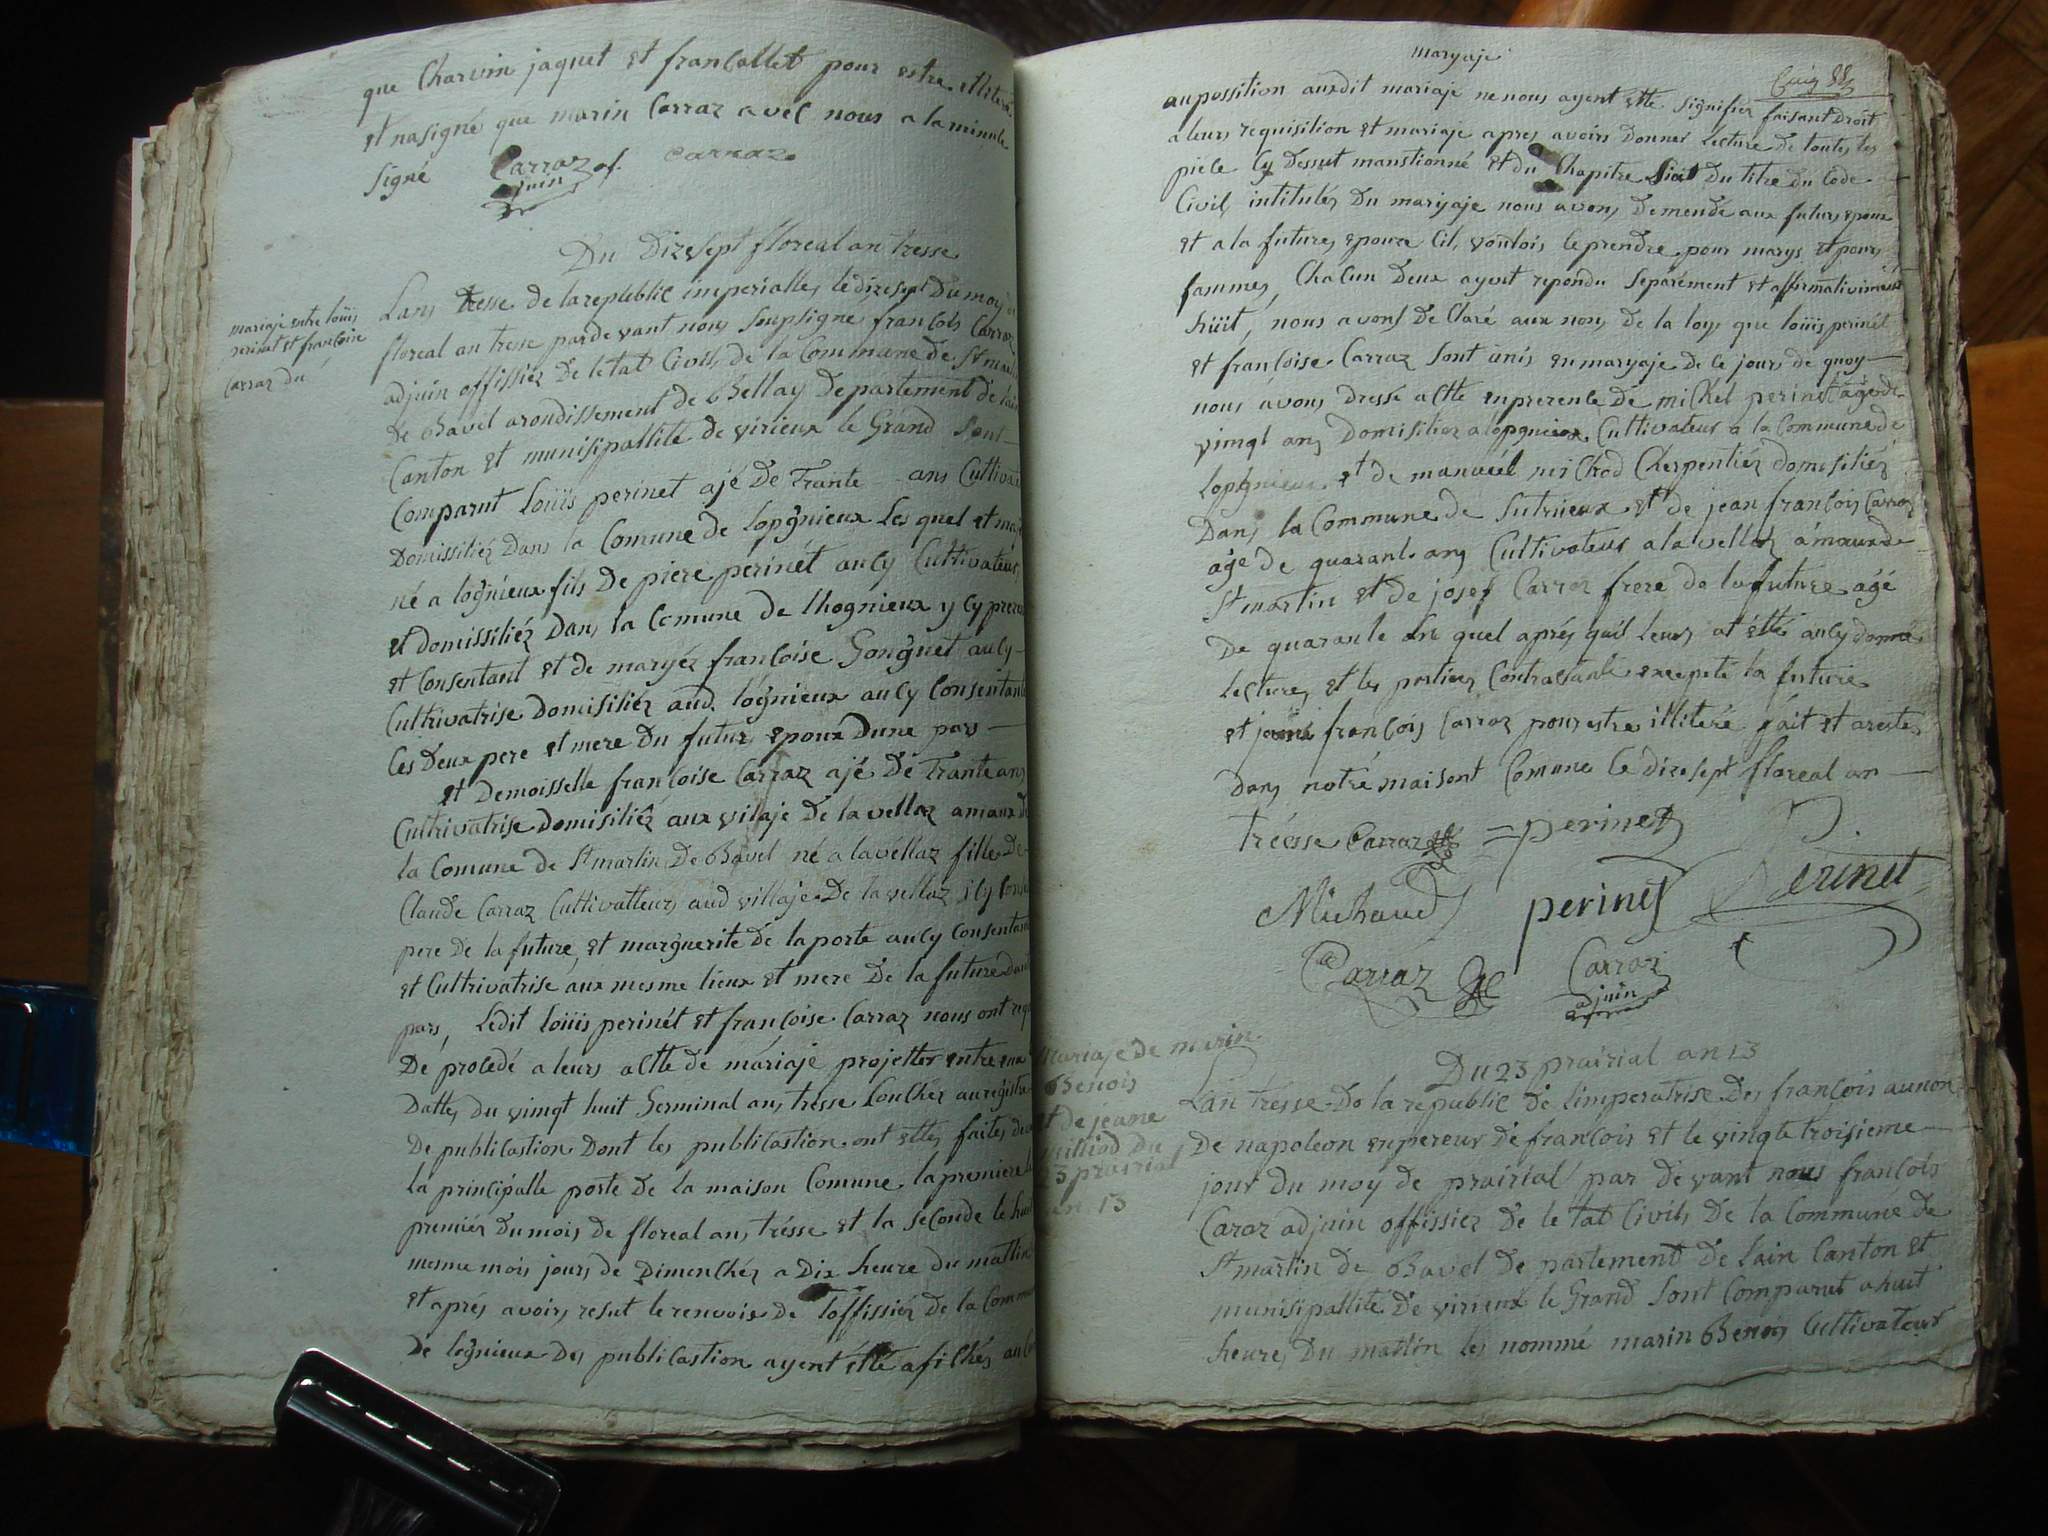 que Charvin jaquet et francallet pour estre illiteré
et nasigné que marin Carraz avec nous a la minute
Signé Carraz of. Carraz
ajuin
Du Dizsept floreal an tresse
mariaje entre loüis
perinet et françoise
Carraz du
Lans tresse de la republic imperialles le dizesept Du moy
floreal an tresse pardevant nous Soupsigne françois Carraz
adjuin offissiez De letat Civils de la Commune de St
De Bavel arondissement de Bellay Departement de
Canton et munisipallité de virieux le Grand Sont
Comparut Loüis perinet ajé De Trante ans
Domissiliez Dans la Comune de lopgnieux Les quel et
né a lognieux fils De piere perinet aucy Cultivateurs
et domissiliez Dans la Comune de lhognieux y cy
et Consentant et de maryéz françoise Gongnet aucy
Cultrivatrise Domisiliéz aud. lognieux aucy Consentante
les Deux pere et mere Du futur epoux Dune pars
et Demoisselle françoise Carraz ajé De Trante ans
Cultrivatrise domisiliéz aux vilaje de la vellaz amaux
la Comune de St martin De Bavel né a la véllaz fille De
Claude Carraz Cultivatteurs aud villaje De la vellaz y cy
pere de la future, et marguerite de la porte aucy Consentante
et Cultrivatrise aux mesme lieux et mere De la future
pars, Ledit loüis perinét et françoise Carraz nous ont
De procedé a leurs actte de máriaje projetter entre eux
Dattes du vimgt huit Germinal ans tresse Couchéz au
De publicastion Dont les publicastion ont ettes faites
la principâlle porte de la maison Comune la premiere
premiér du mois de floreal ans trésse et la seconde le huit
mesme mois jours de Dimenchéz a Dix heure du mattin
et aprés avoirs resut le renvois de loffissiéz de la
de lognieux Des publicastion ayent étté afichés
maryaje
auposition auxdit mariaje ne nous ayent étté Signifiez faisant Droit
a leurs requisition et mariaje apres avoirs donner lecture de toutes les
piéce Cy dessut manstionné et du Chapitre Sixt Du titre du Code
Civils intitulés Du maryaje nous avons Demende aux futurs epoux
et a la futures epouze Cils voulois le prendre pour marys et pours
fammes, Chacun Deux ayent repondu Séparément et affirmativiment
hüit, nous avons De Claré aux nons de la loys que loüis perinét
et françoise Carraz Sont ünis en maryaje de ce jours de quoy
nous ávons Dressé actte en presence de michel perinet âgé de
vimgt ans Domisiliez a lopgnieux Cultivateurs a la Commune de
lopgnieux et de manuél michod Cherpentiéz domisiliéz
Dans la Commune de Sutrieux et de jean françois Carraz
âgé de quarant ans Cultivateurs a la vellaz
St martin et de josef Carraz frere de la future agé
De quarante Les quel aprés quil leurs at étté aucy donné
lectures et les parties Contractante exepeté la future
et jeanne françois Carraz pour estre illiteré fait et arestes
Dans notré maisont Comune le dizesept floreal an
tréesse Carraz = perinet
Michaud perinet Perinet
Carraz Carraz
ajuin
Du 23 prairial an 13
Mariaje de marin
Benois
et de jeanne
milliod Du
23 prairial
an 13
Lan trésse De la republic de limperatrise Des françois au non
De napoleon enpereur dé francois et le vingte troisieme
jour du moy de prairial par de vant nous françois
Caraz adjuin offissiez de létat Civils De la Communé de
St martin de Bavel de partement De lain Canton et
munisipallité De virieux le Grand Sont Comparut a huit
heures Du mattin les nommé marin Benois Cultivateur